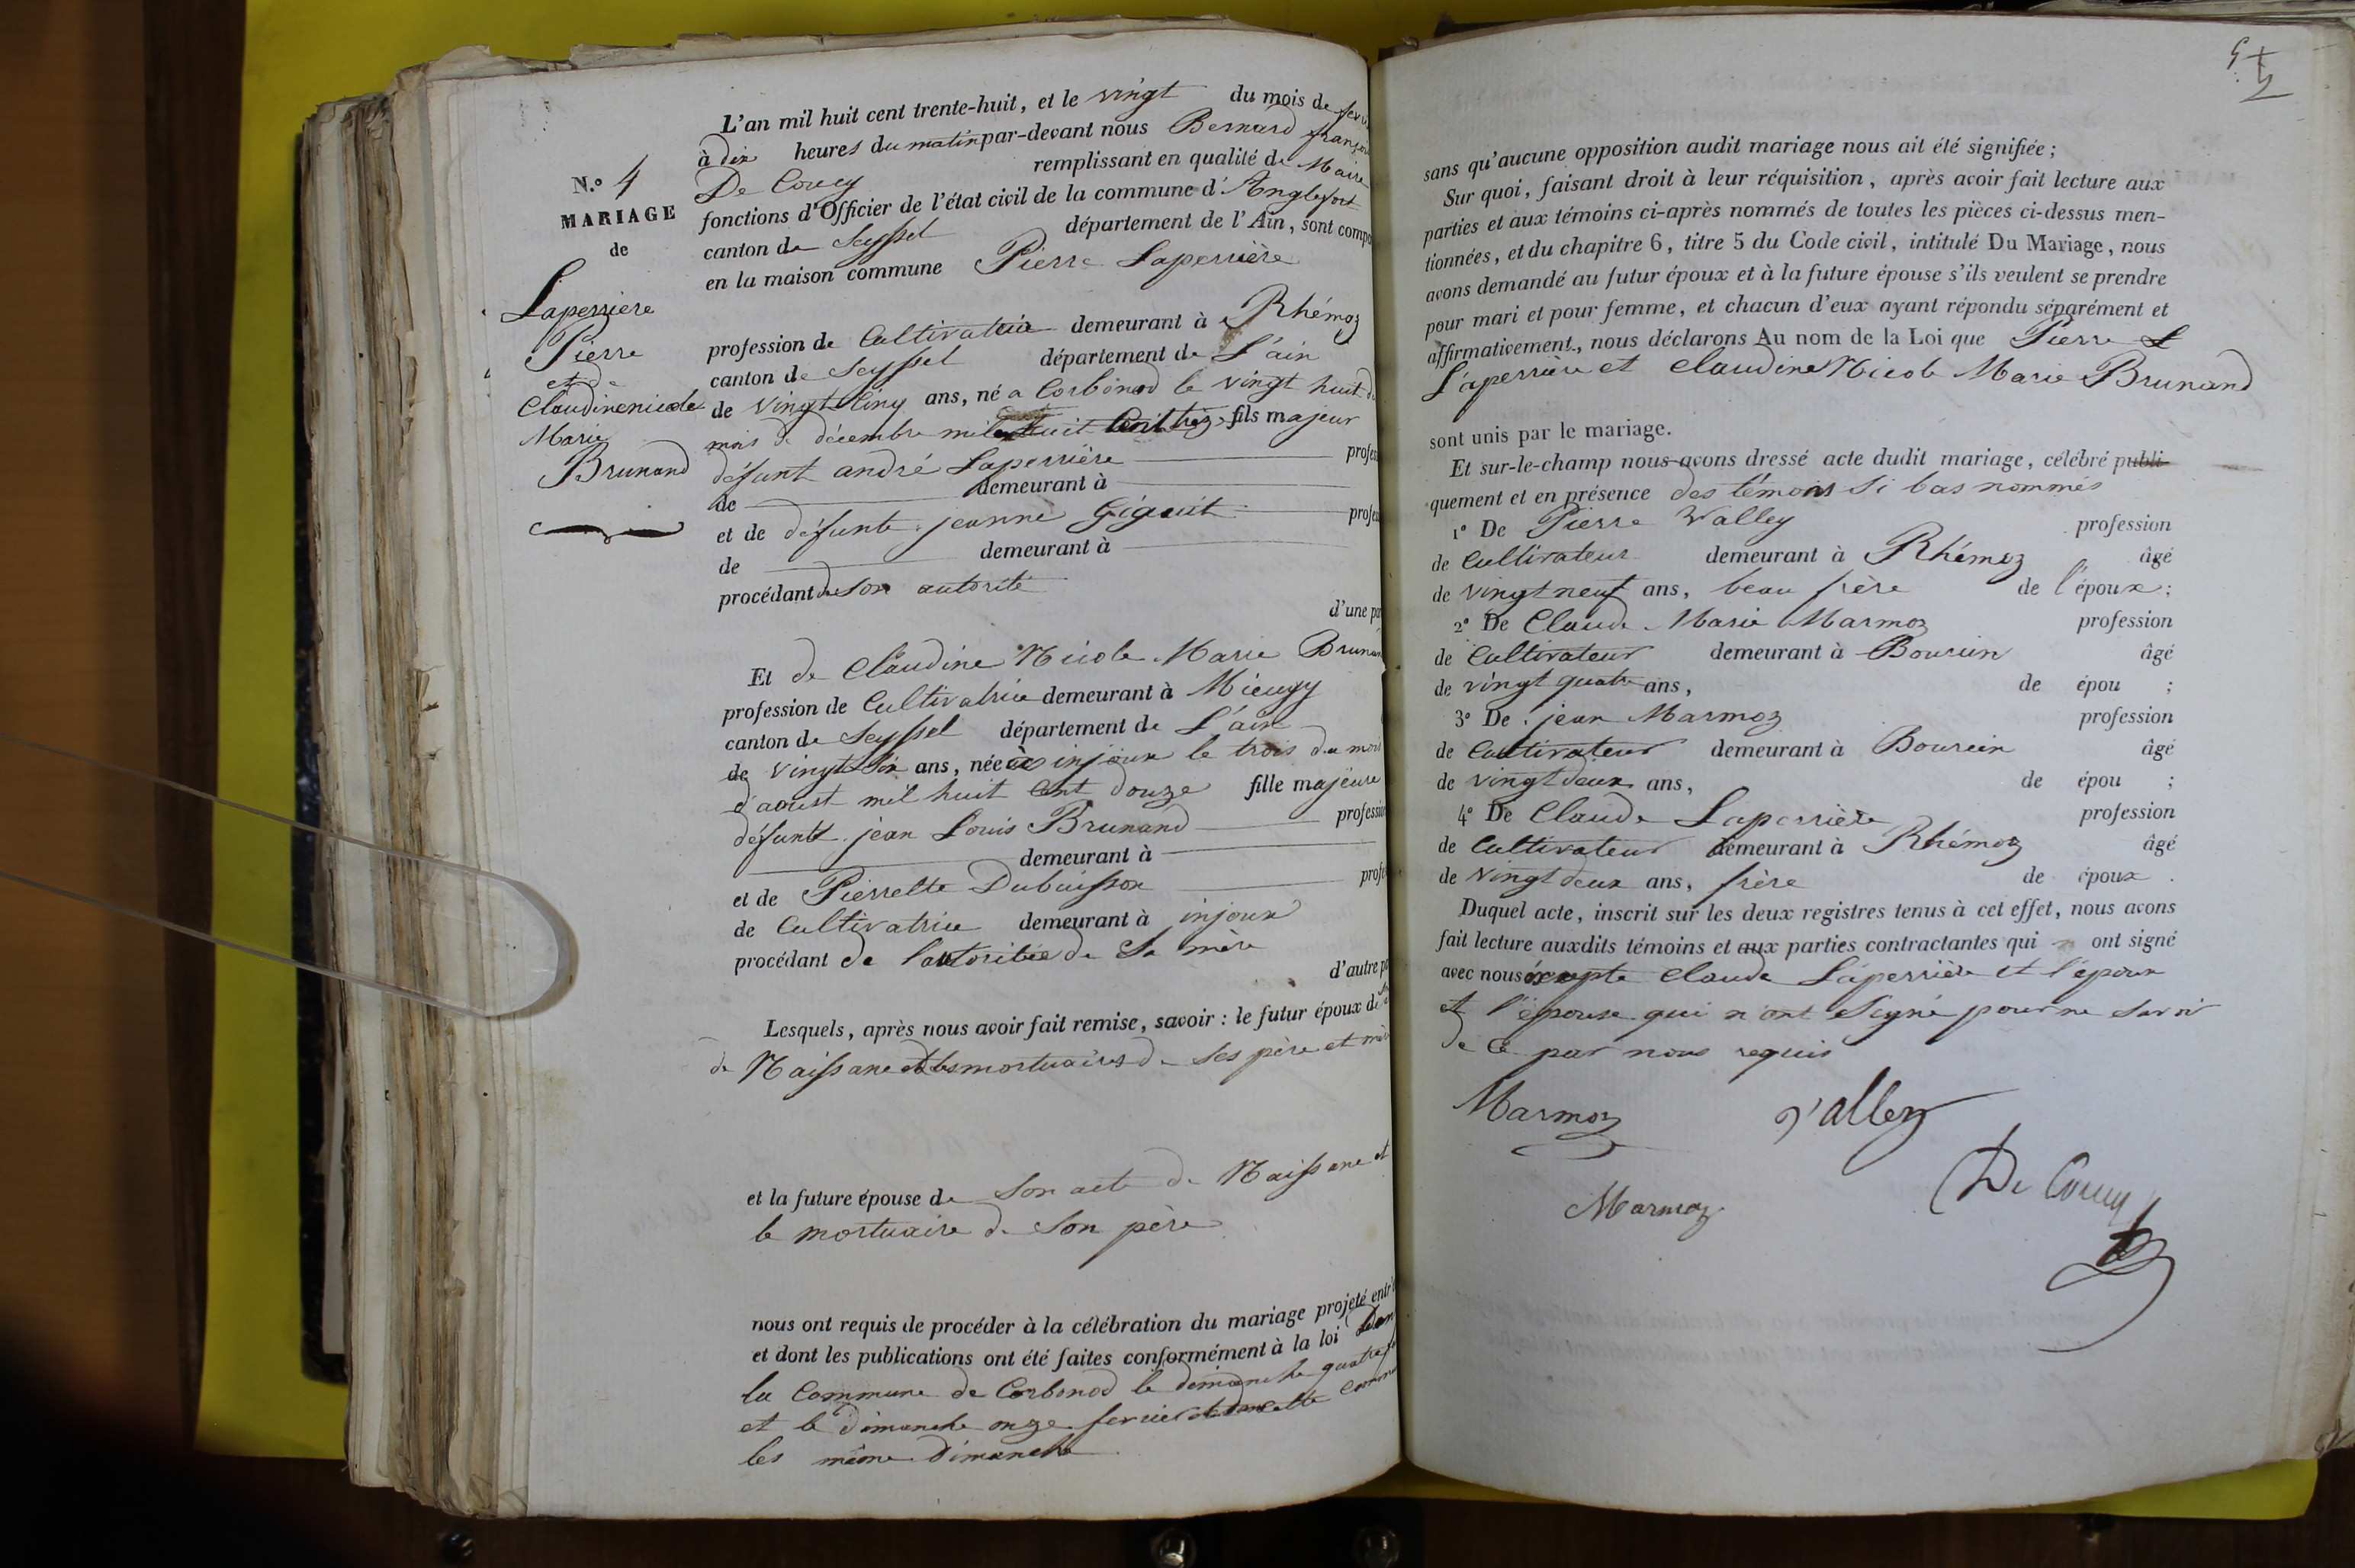 N.o 4
MARIAGE
de
Laperriere
Pierre
et de
Claudine nicole
Marie
Brunand
L'an mil huit cent trente-huit, et le vingt du mois de
à dix heures du matin par-devant nous Bernard françois
De Coucy remplissant en qualité de Maire
fonctions d'Officier de l'état civil de la commune d'Anglefort
canton de Seyssel département de l'Ain, sont compa
en la maison commune Pierre Laperrière
profession de Cultivateur demeurant à Rhémoz
canton de Seyssel département de L'ain
de vingt Cinq ans, né a Corbonod le vingt huit du
mois de décembre mil huit Cent fils majeur
défunt andré Laperrière profes
de demeurant à
et de défunte jeanne Giguit profes
de demeurant à
procédant de Son autorité
d'une pa
Et de Claudine Nicole Marie Brunan
profession de Cultivatrice demeurant à Mieugy
canton de Seyssel département de L'ain
de vingt Six ans, née à injoux le trois du mois
d'aoust mil huit Cent douze fille majeure
défunt jean Louis Brunand profession
demeurant à
et de Pierrette Dubuisson profe
de Cultivatrice demeurant à injoux
procédant de l'autoritée de Sa mère
d'autre pa
Lesquels, après nous avoir fait remise, savoir : le futur époux de
de Naissance et les mortuaires de Ses père et mère
et la future épouse de Son acte de Naissance et
le mortuaire de Son père
nous ont requis de procéder à la célébration du mariage projeté entr
et dont les publications ont été faites conformément à la loi Dan
la Commune de Corbonod le dimanche quatre
et le dimanche onze fevrier et dans cette Commu
les même dimanche
sans qu'aucune opposition audit mariage nous ait été signifiée ;
Sur quoi, faisant droit à leur réquisition, après avoir fait lecture aux
parties et aux témoins ci-après nommés de toutes les pièces ci-dessus men-
tionnées, et du chapitre 6, titre 5 du Code civil, intitulé Du Mariage, nous
avons demandé au futur époux et à la future épouse s'ils veulent se prendre
pour mari et pour femme, et chacun d'eux ayant répondu séparément et
affirmativement, nous déclarons Au nom de la Loi que Pierre L
Laperrière et Claudine Nicole Marie Brunand
sont unis par le mariage.
Et sur-le-champ nous avons dressé acte dudit mariage, célébré publi-
quement et en présence des témoins Si bas nommés
1o De Pierre Valley profession
de Cultivateur demeurant à Rhémoz âgé
de vingt neuf ans, beau frère de l'époux ;
2o De Claude Marie Marmoz profession
de Cultivateur demeurant à Bourcin âgé
de vingt quatre ans, de épou ;
3o De jean Marmoz profession
de Cultivateur demeurant à Bourcin âgé
de vingt deux ans, de épou ;
4o De Claude Laperrière profession
de Cultivateur demeurant à Rhémoz âgé
de vingt deux ans, frère de époux .
Duquel acte, inscrit sur les deux registres tenus à cet effet, nous avons
fait lecture auxdits témoins et aux parties contractantes qui ont signé
avec nous excepte Claude Laperrière et l'époux
et l'épouse qui n'ont Signé pour ne Savoir
de Ce par nous requis
Marmoz Valley
Marmoz De Coucy